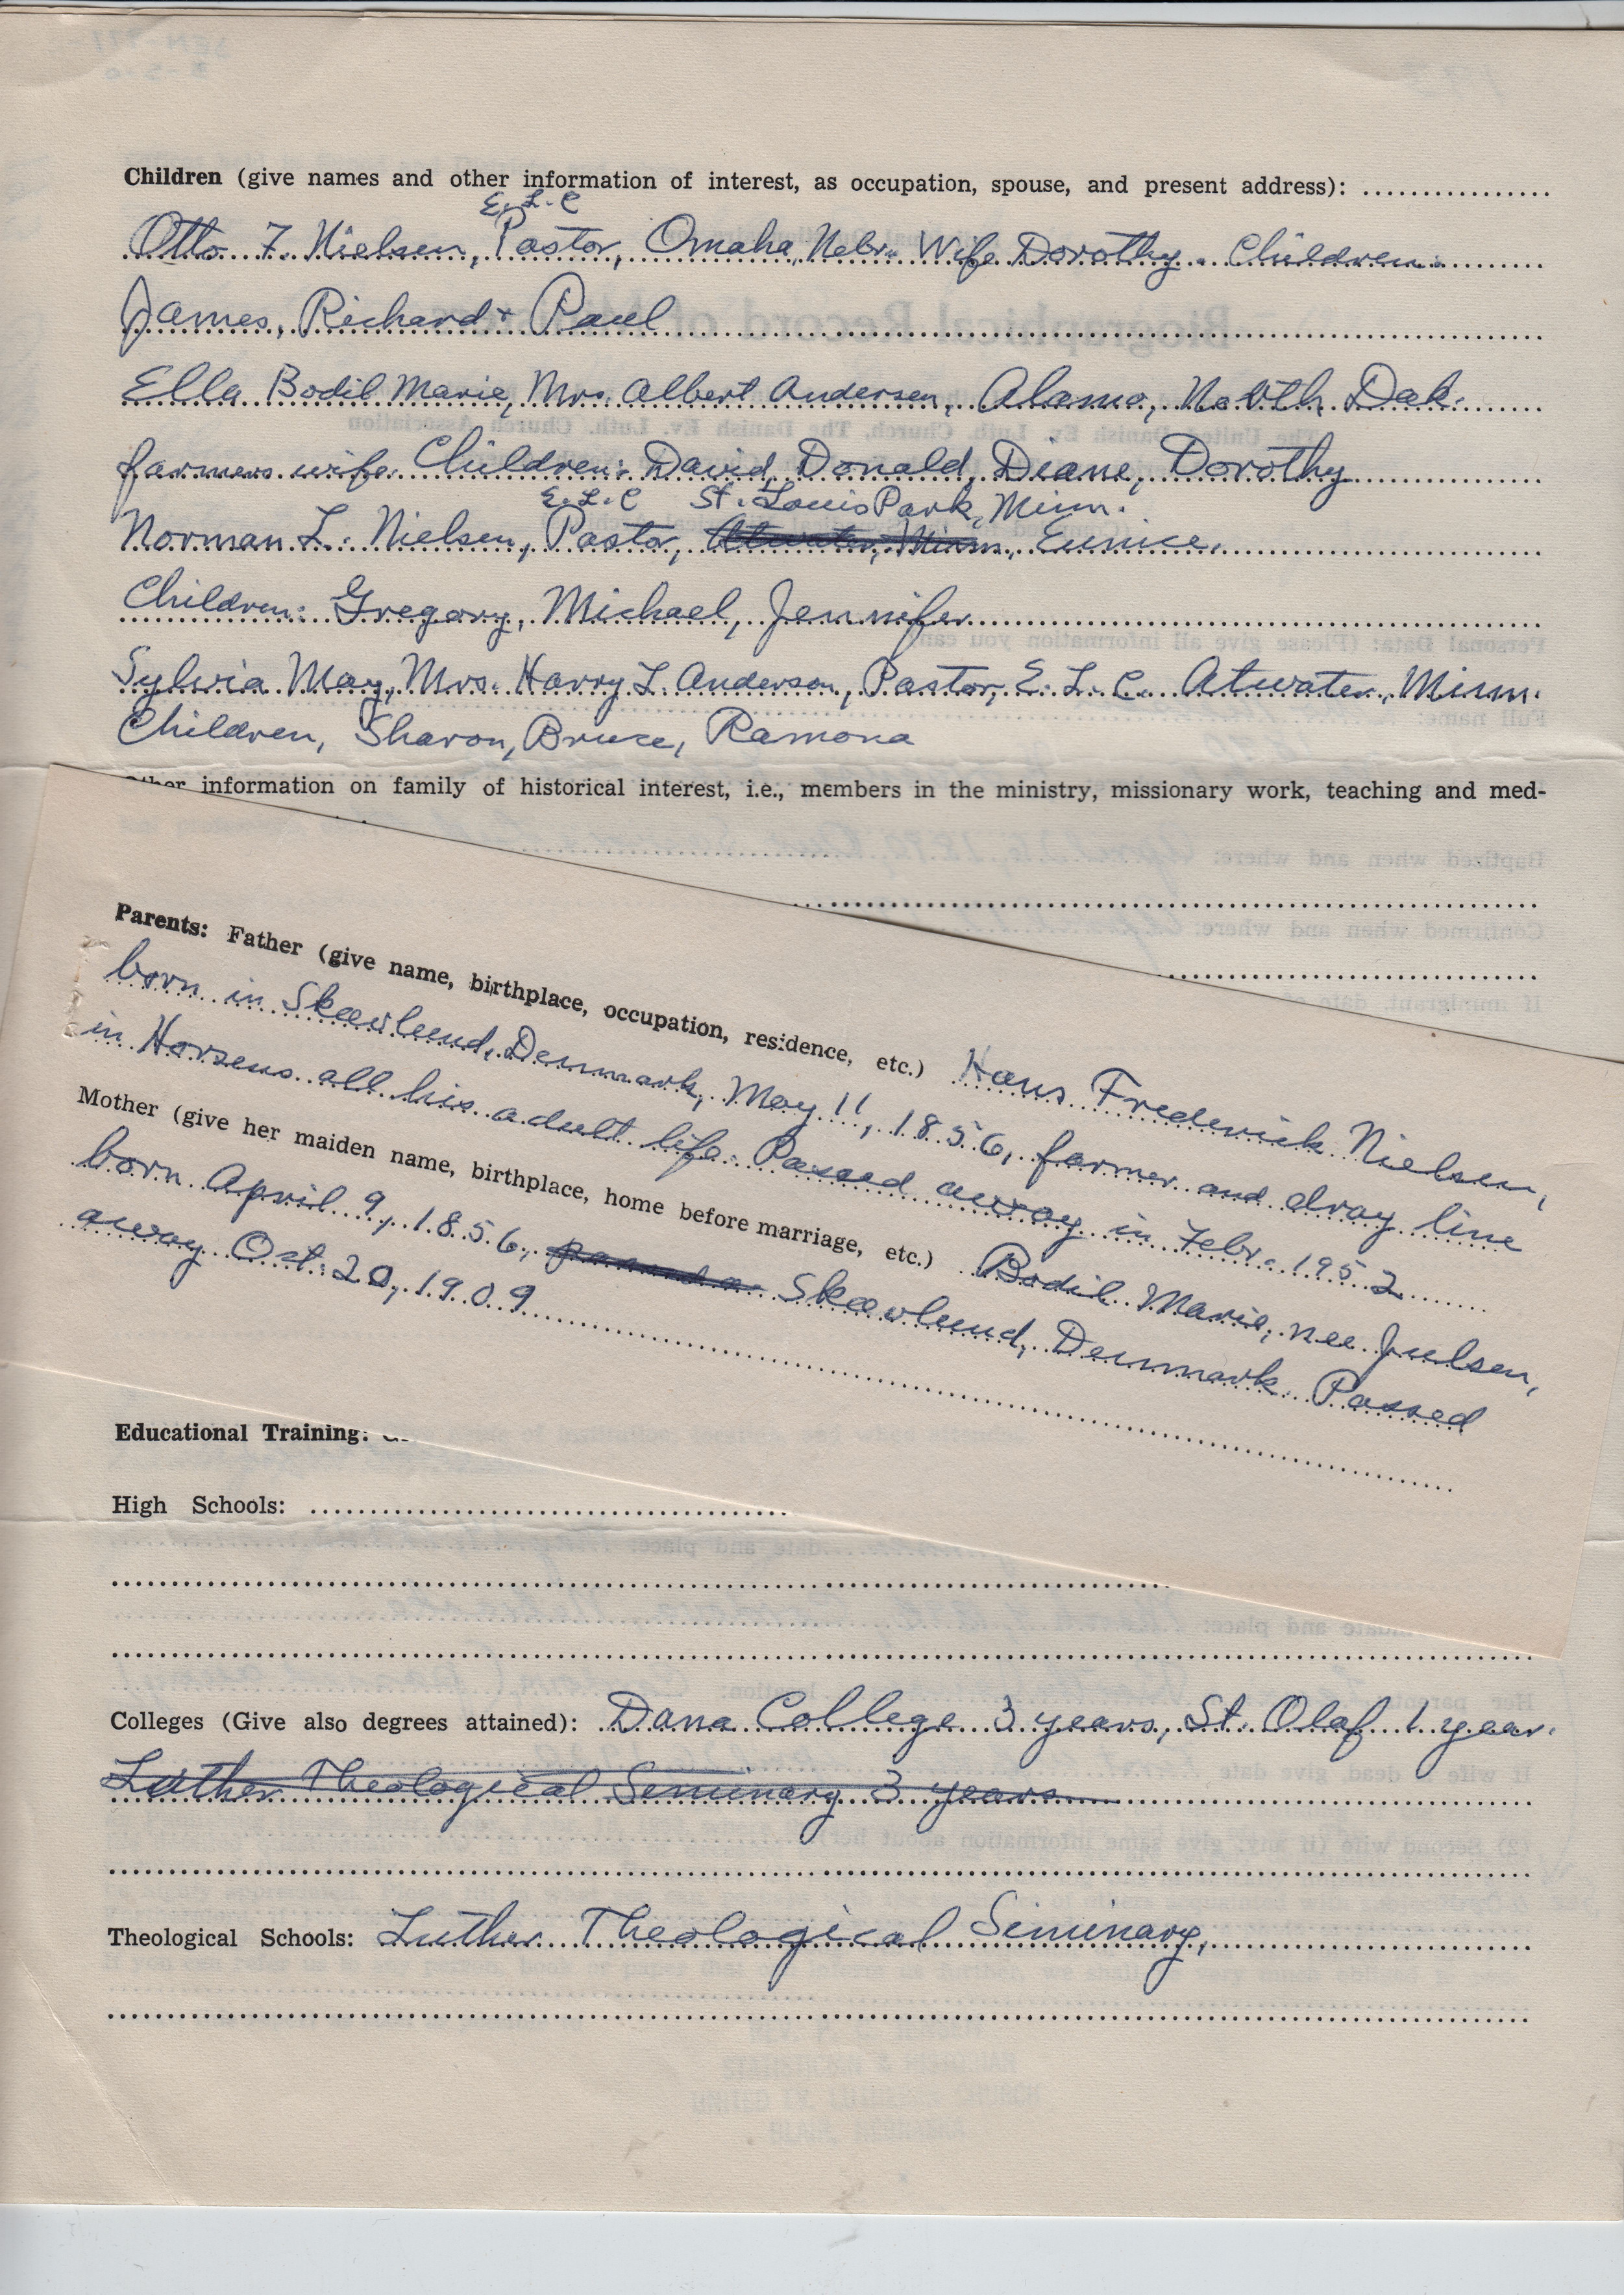 Children (give names and other information of interest, as occupation, spouse, and present address):
E. L. C
Otto F. Nielsen, Pastor, Omaha, Nebr. Wife Dorothy. Children:
James, Richard + Paul
Ella Bodil Marie, Mrs. Albert Andersen, Alamo, North Dak.
farmers wife. Children: David, Donald, Diane, Dorothy
E. L. C St. Louis Park, Minn.
Norman L. Nielsen, Pastor, Atwater, Minn, Eunice.
Children: Gregory, Michael, Jennifer
Sylvia May, Mrs. Harry L. Anderson, Pastor, E. L. C. Atwater, Minn.
Children, Sharon, Bruce, Ramona
Other information on family of historical interest, i.e., members in the ministry, missionary work, teaching and med-
Parents: Father (give name, birthplace, occupation, residence, etc.) Hans Frederick Nielsen,
born in Skavlund, Denmark, May 11, 1856, farmer and dray line
in Horsens all his adult life. Passed away in Febr. 1952
Mother (give her maiden name, birthplace, home before marriage, etc.) Bodil Marie, nee Juulsen,
born April 9, 1856, Skavlund, Denmark. Passed
away Ost. 20, 1909
Educational Training:
High Schools:
Colleges (Give also degrees attained): Dana College 3 years, St. Olaf 1 year.
Luther Theological Seminary 3 years
Theological Schools: Luther Theological Seminary,